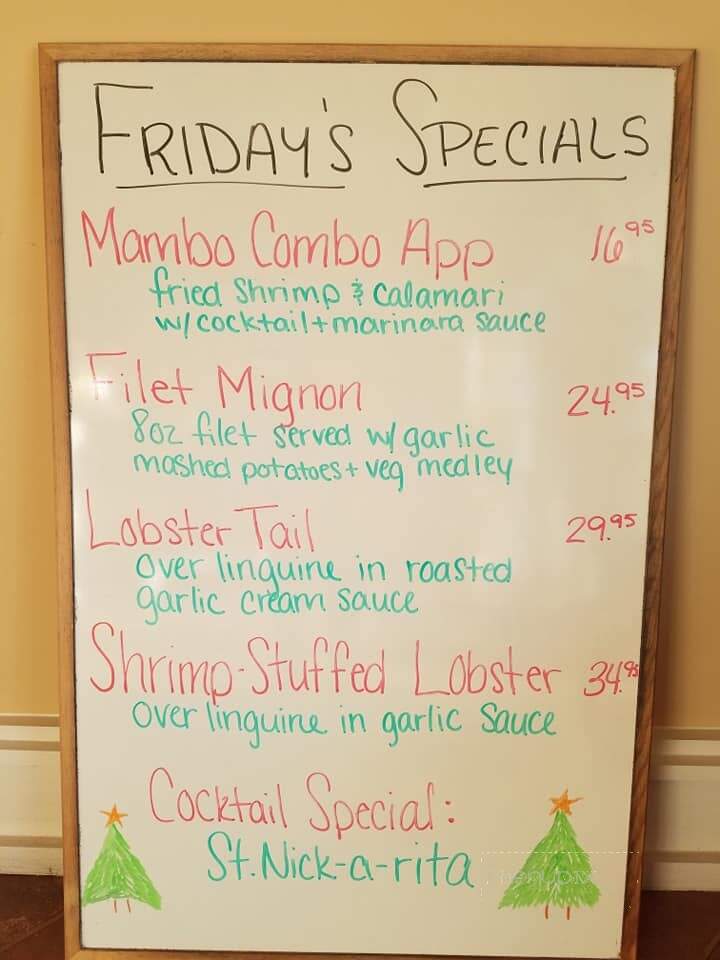 FRIDAY'S SPECIALS
Mambo Combo App 16.95
fried Shrimp & Calamari
w/cocktail + marinara sauce
Filet Mignon 24.95
8oz filet served w/ garlic
mashed potatoes + veg medley
Lobster Tail 29.95
over linguine in roasted
garlic cream sauce
Shrimp-Stuffed Lobster 34.95
over linguine in garlic sauce
Cocktail Special:
St. Nick-a-rita